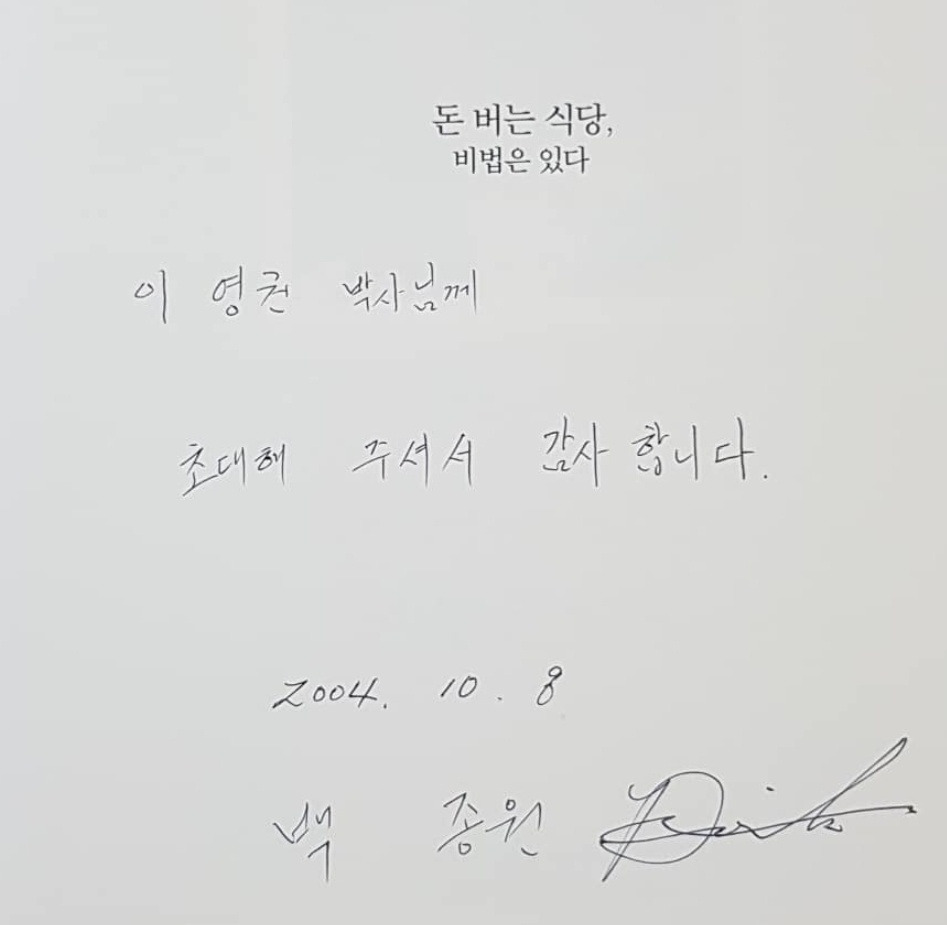 돈 버는 식당,
비법은 있다
이 영권 박사님께
초대해 주셔서 감사합니다.
2004. 10. 8
백 종원